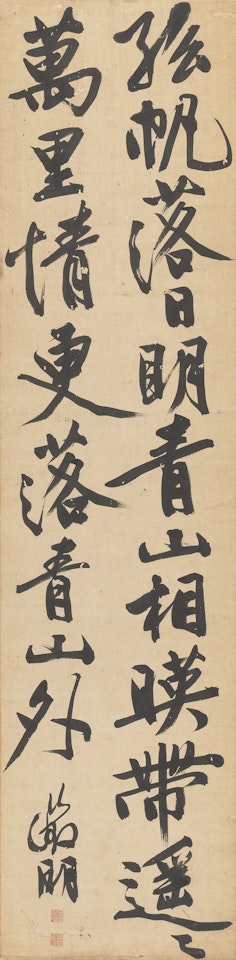 孤帆落日明青山相映帶遥〻
萬里情更落青山外
徵明